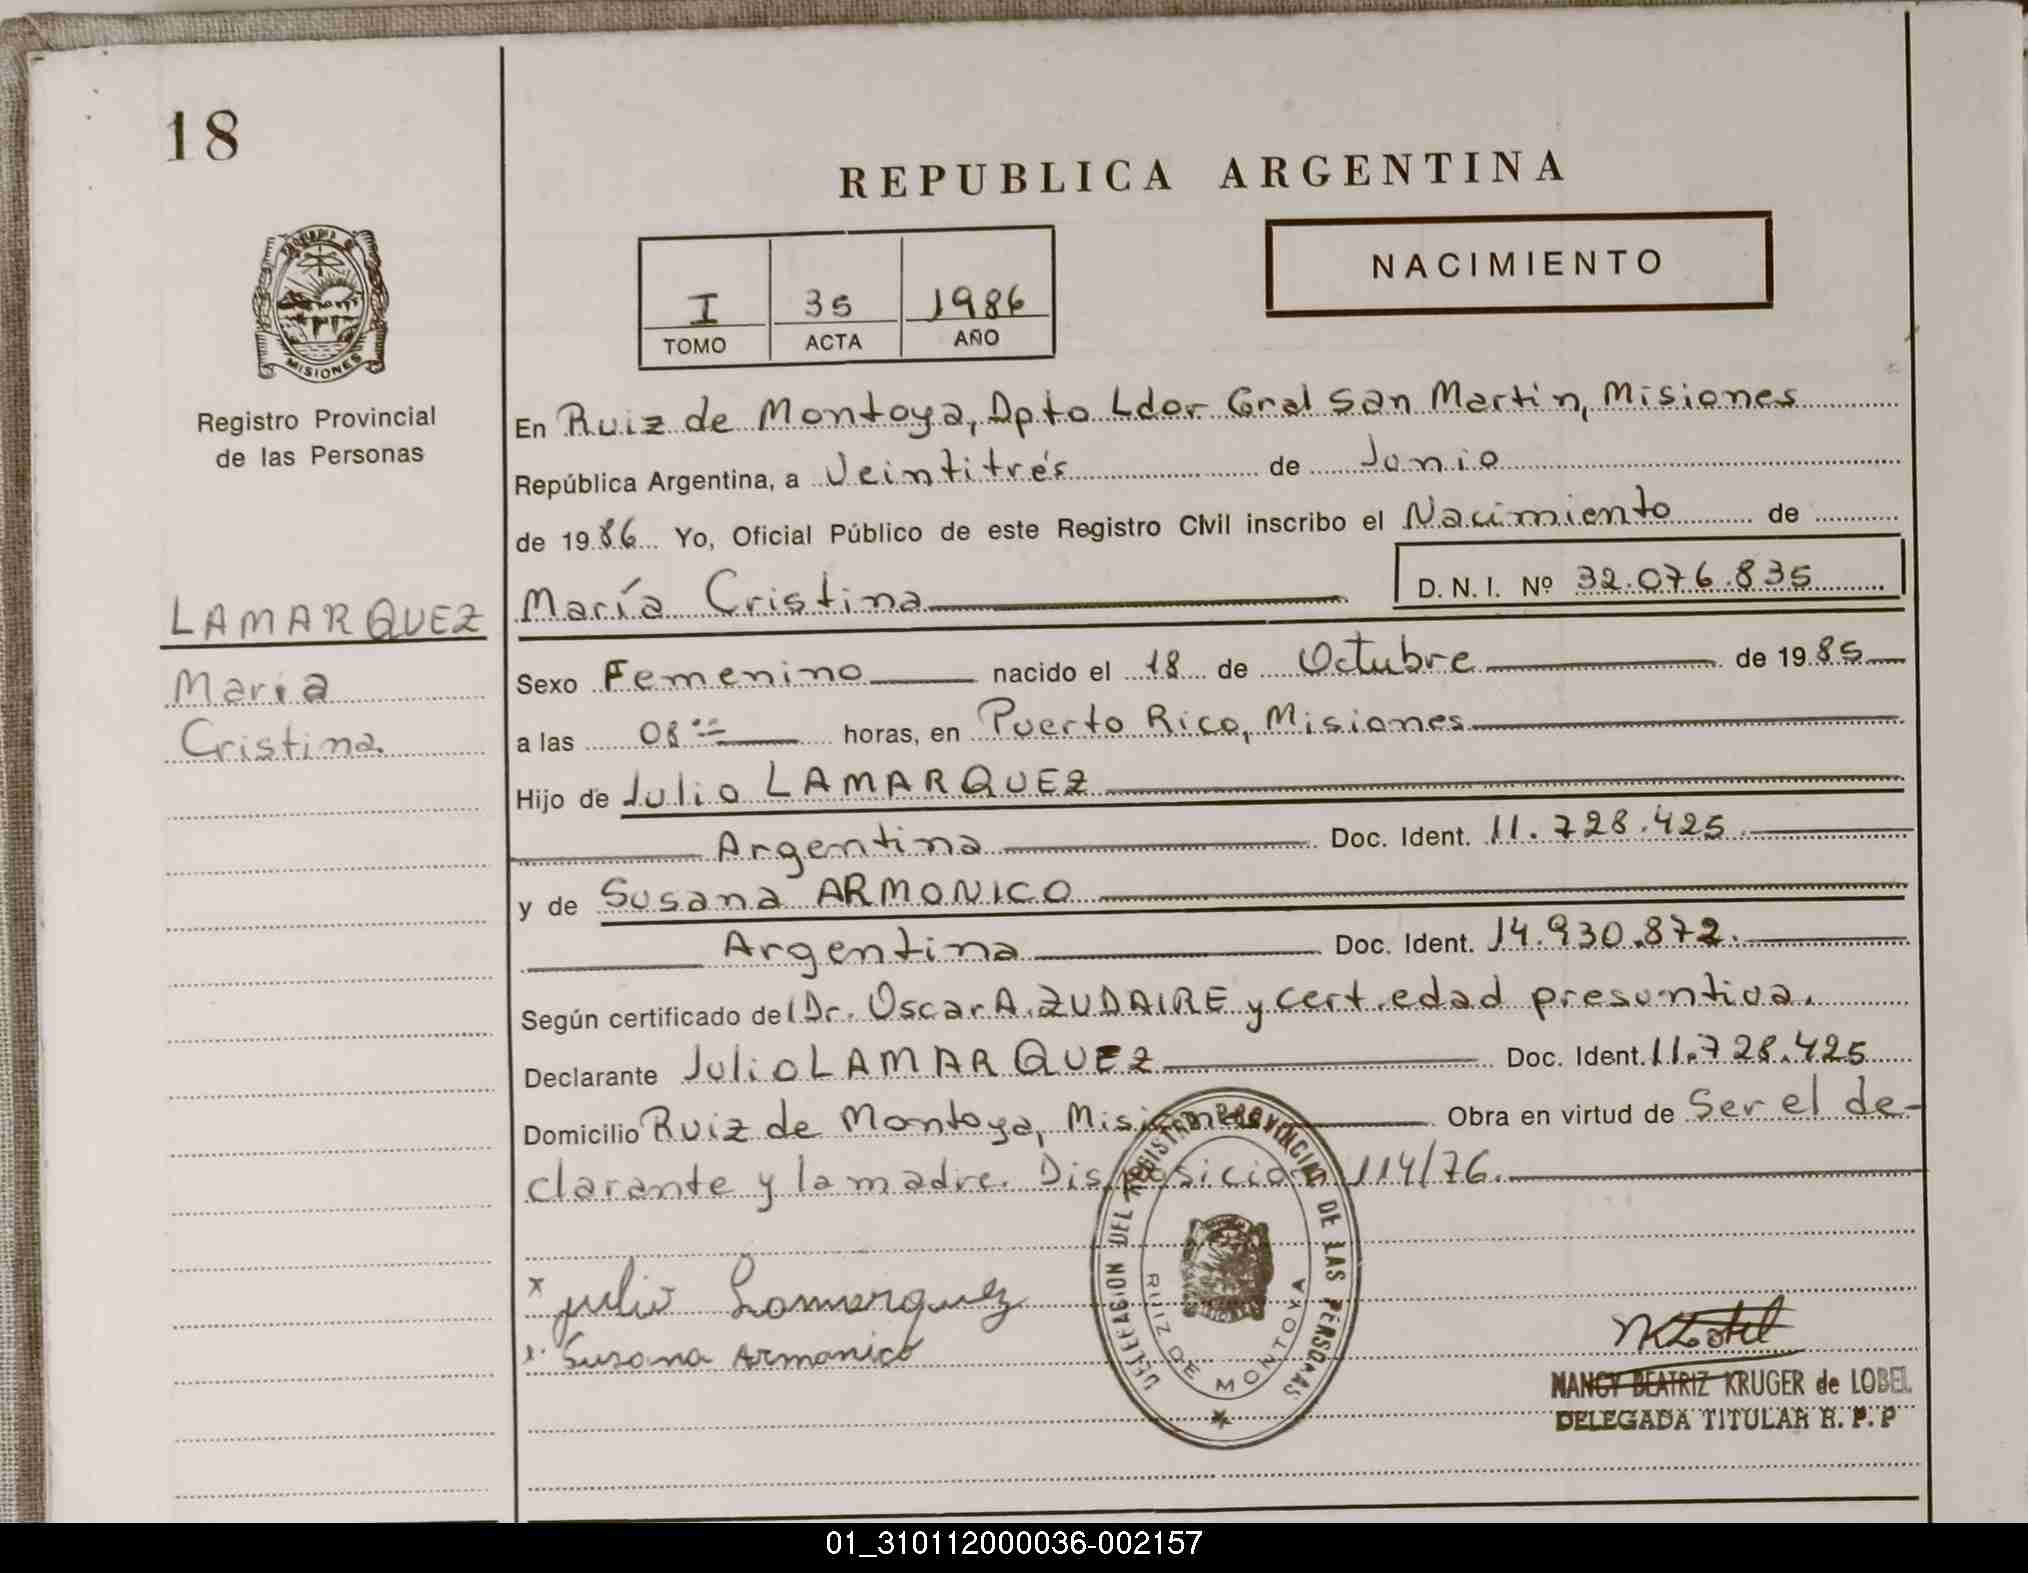 18
REPUBLICA ARGENTINA
PROVINCIA DE
MISIONES
Registro Provincial
de las Personas
NACIMIENTO
I 35 1986
TOMO ACTA AÑO
En Ruiz de Montoya, Dpto Ldor Gral San Martin, Misiones
República Argentina, a Veintitrés de Junio
de 1986 Yo, Oficial Público de este Registro Civil inscribo el Nacimiento de
María Cristina D. N. I. Nº 32.076.835
LAMARQUEZ
María
Cristina
Sexo Femenino nacido el 18 de Octubre de 1985
a las 08 horas, en Puerto Rico, Misiones
Hijo de Julio LAMARQUEZ
Argentina Doc. Ident. 11.728.425
y de Susana ARMONICO
Argentina Doc. Ident. 14.930.872.
Según certificado del Dr. Oscar A. ZUDAIRE y cert. edad presuntiva.
Declarante Julio LAMARQUEZ Doc. Ident. 11.728.425
Domicilio Ruiz de Montoya, Misiones Obra en virtud de Ser el de-
clarante y la madre. Disposicion 114/76.
x julio Lamarquez
x Susana Armonico
DELEGACION DEL REGISTRO PROVINCIAL DE LAS PERSONAS
RUIZ DE MONTOYA
NANCY BEATRIZ KRUGER de LOBEL
DELEGADA TITULAR R. P. P
01_310112000036-002157